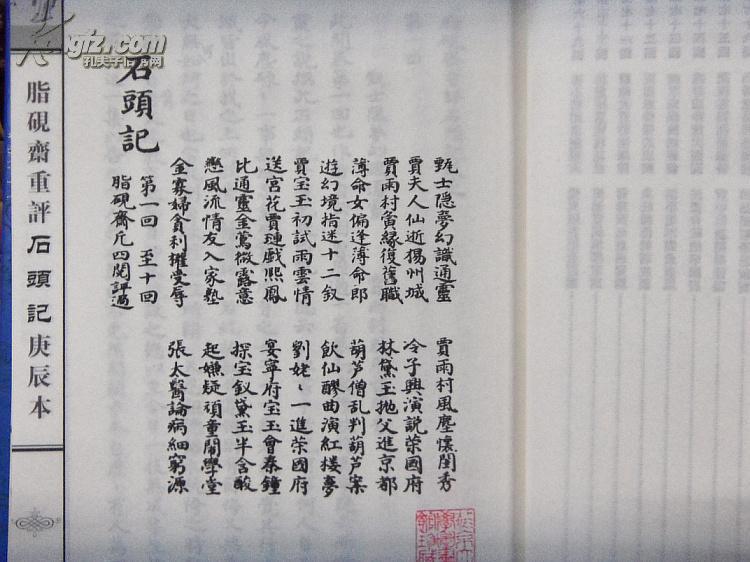 gfz.com
孔夫子旧书网
脂硯齋重評石頭記庚辰本
甄士隐夢幻識通靈 賈雨村風塵懷閨秀
賈夫人仙逝揚州城 冷子興演說荣國府
賈雨村夤緣復舊職 林黛玉抛父進京都
薄命女偏逢薄命郎 葫芦僧乱判葫芦案
遊幻境指迷十二釵 飲仙醪曲演紅楼夢
賈宝玉初試雨雲情 劉姥〻一進荣國府
送宮花賈璉戲熙鳳 宴寧府宝玉會秦鐘
比通靈金鶯微露意 探宝釵黛玉半含酸
戀風流情友入家塾 起嫌疑頑童鬧學堂
金寡婦貪利權受辱 張太醫論病細窮源
石頭記
第一回 至十回
脂硯齋凡四閱評過